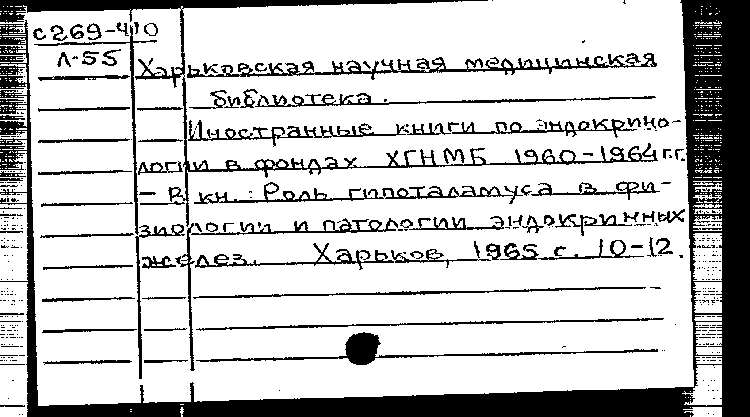 с269-410
Л-55
Харьковская научная медицинская
библиотека.
Иностранные книги по эндокрино-
логии в фондах ХГНМБ 1960-1964 гг.
- В кн.: Роль гипоталамуса в фи-
зиологии и патологии эндокринных
желез. Харьков, 1965 с. 10-12.